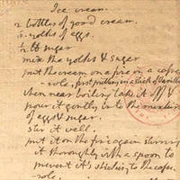 Ice cream.
2 bottles of good cream.
6 yolks of eggs.
1/2 lb sugar
mix the yolks & sugar
put the cream on a fire in a casse-
role, first putting in a stick of Vanilla.
when near boiling take it off &
pour it gently into the mixture
of eggs & sugar.
stir it well.
put it on the fire again stirring
it thoroughly with a spoon to
prevent it's sticking to the casse-
role.